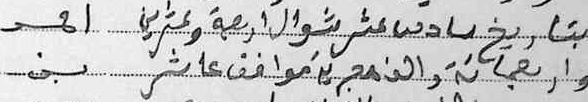 بتاريخ سادس عشر شوال اربعة وعشرين
واربعمائة والف هجرية موافق عاشر